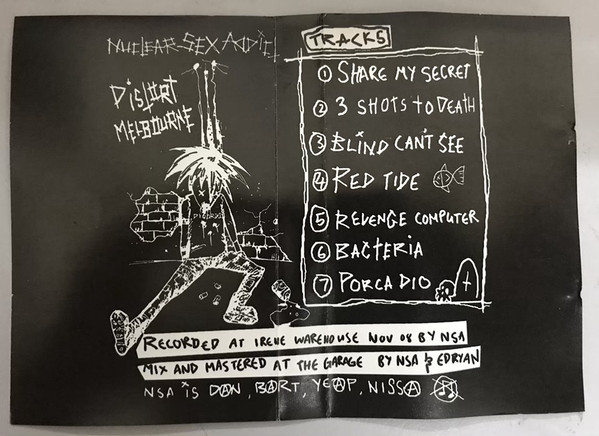 NUCLEAR SEX ADDICT
DISTORT
MELBOURNE
TRACKS
1 SHARE MY SECRET
2 3 SHOTS to DEATH
3 BLIND CAN'T SEE
4 RED TIDE
5 REVENGE COMPUTER
6 BACTERIA
7 PORCA DIO
RECORDED AT IRENE WAREHOUSE NOV 08 BY NSA
MIX AND MASTERED AT THE GARAGE BY NSA & EDRYAN
NSA IS DAN, BART, YEAP, NISSA